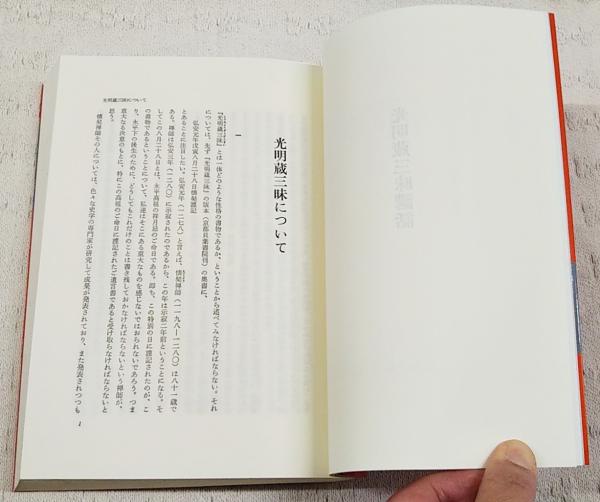 光明蔵三昧について
光明蔵三昧について
一
『光明蔵三昧』とは一体どのような性格の書物であるか、ということから述べてみなければならない。それ
については、先ず『光明蔵三昧』の版本（京都貝葉書院刊）の奥書に、
弘安元年戊寅八月二十八日懐奘謹記
とあることに注目したい。弘安元年（一二七八）と言えば、懐奘禅師（一一九八―一二八〇）は八十一歳で
ある。禅師は弘安三年（一二八〇）に示寂されたのであるから、この年は示寂二年前ということになる。そ
してこの八月二十八日とは、永平高祖の祥月忌のご命日である。即ち、この特別の日に謹記されたのが、こ
の書物であるということについて、私達はそこにある重大なものを感じないではおられないであろう。つま
り、永平下の後生のために、どうしてもこれだけのことは書き残しておかなければならないという禅師が、
重大なる決意のもとに、特にこの高祖のご命日に謹記されたご遺言書であると受け取らなければならないと
思う。
懐奘禅師その人については、色々な史学の専門家が研究して成果が発表されており、また発表されつつも
1
光明蔵三昧聴話